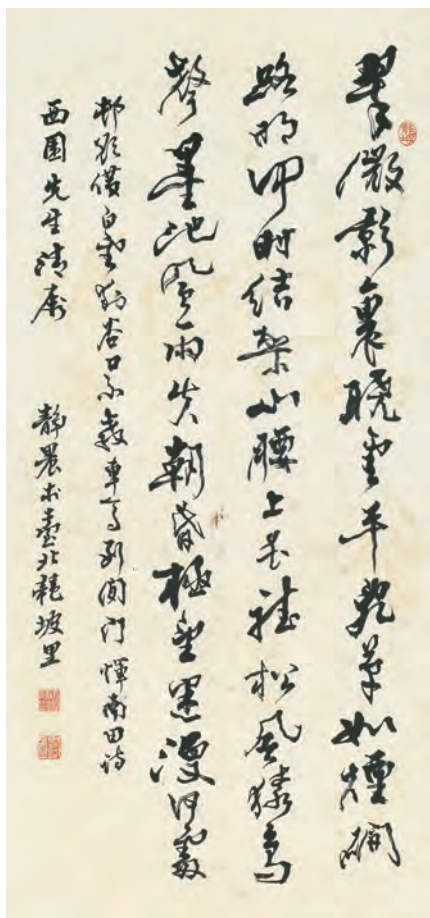 翠微影裏曉雲平亂草如煙磵
路明何時結架山腰上長聽松風猿鳥
聲墨池風雨失朝昏極望漫何處
邨欲借白雲谷口不教車馬到閒門 惲南田詩
西園先生清屬 靜農於臺北龍坡里